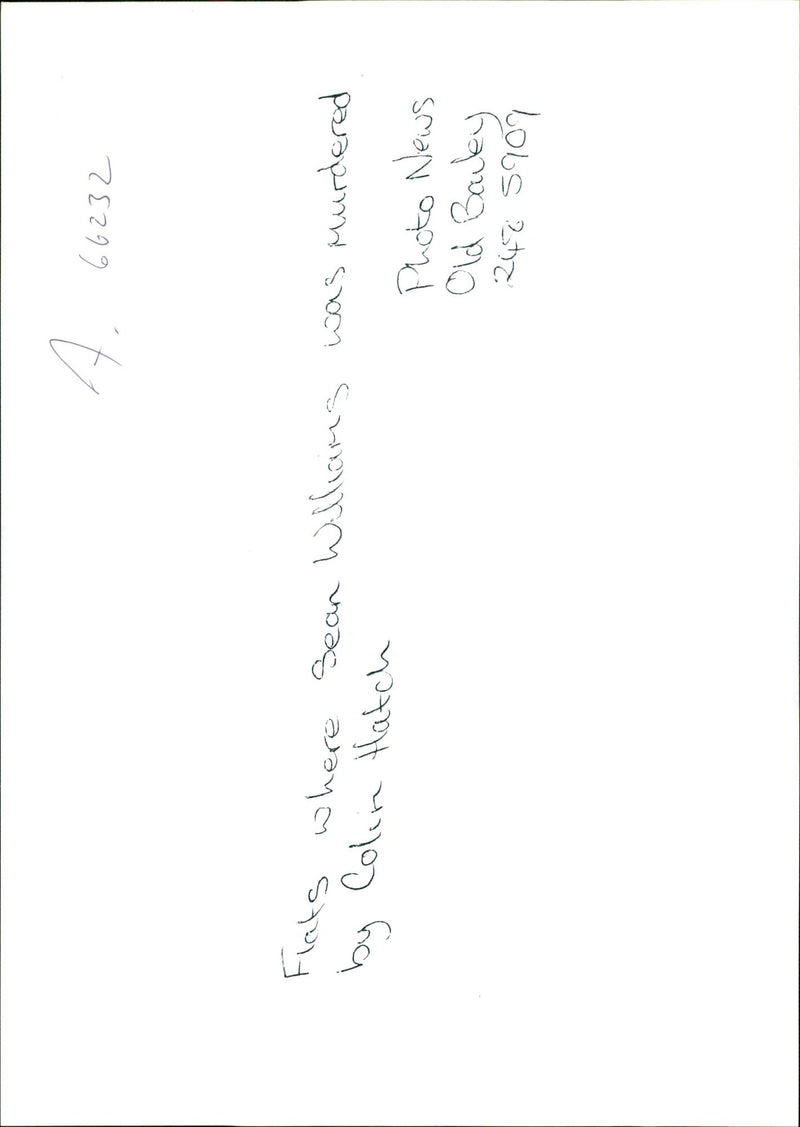 A. 66232
Flats where Sean Williams was Murdered
by Colin Hatch
Photo News
Old Bailey
248 5909